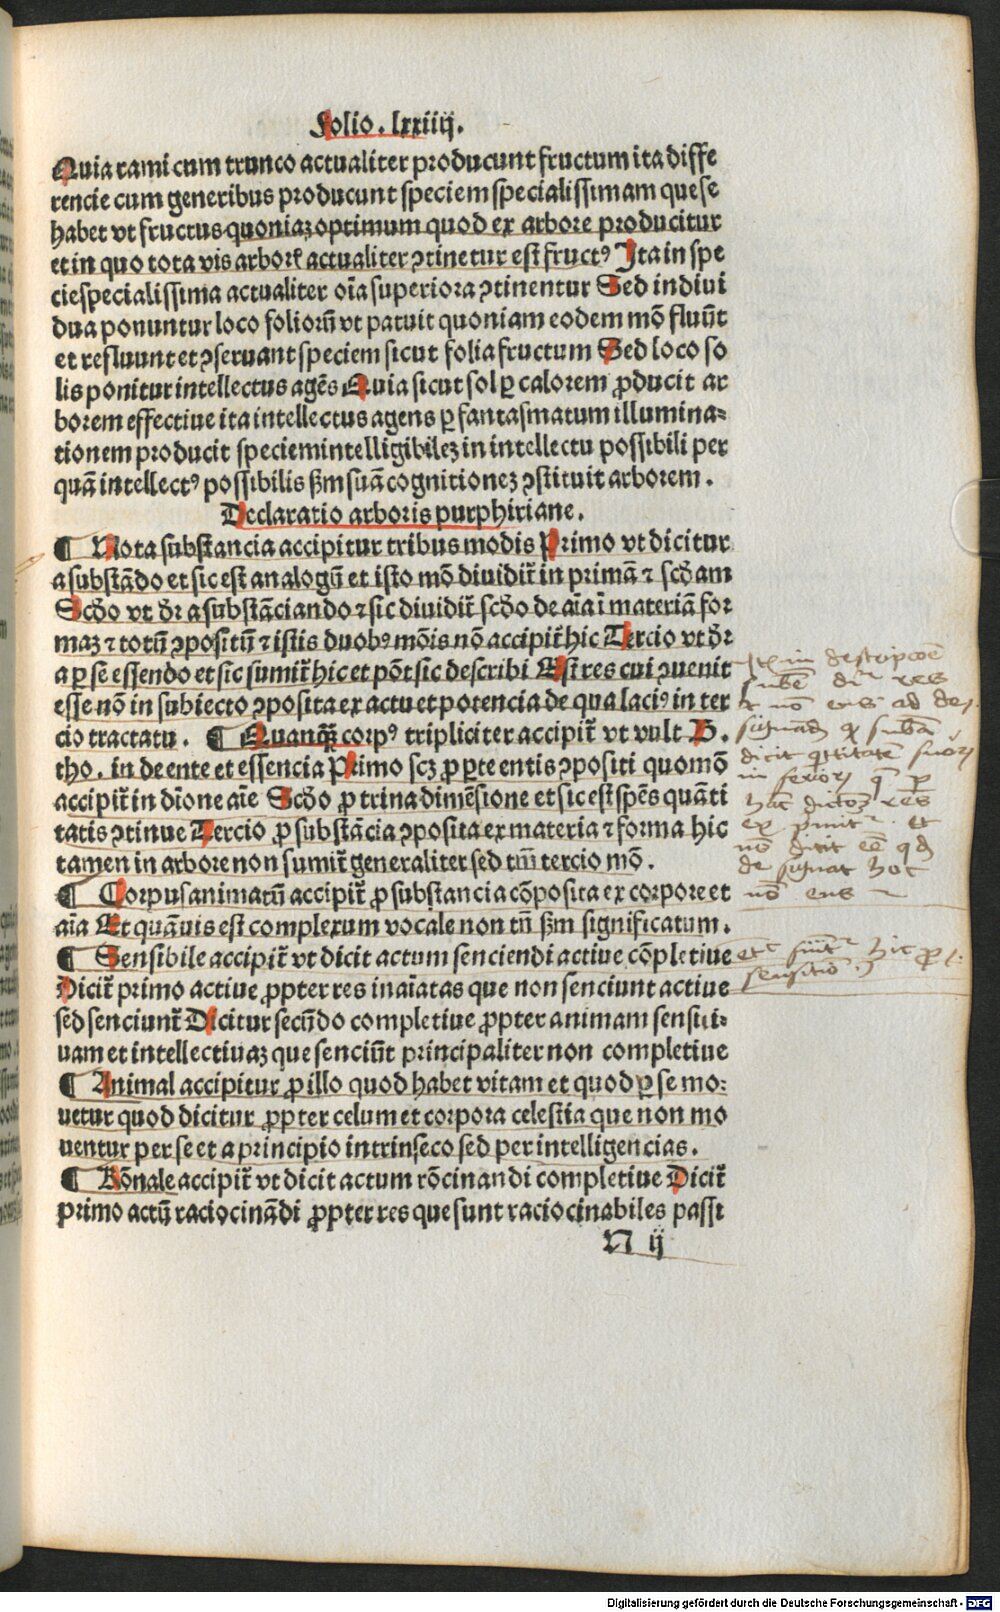 Folio. lxxiiij.
Quia rami cum trunco actualiter producunt fructum ita diffe
rencie cum generibus producunt speciem specialissimam que se
habet vt fructus quoniaꝫ optimum quod ex arbore producitur
et in quo tota vis arboꝝ actualiter ꝯtinetur est fructꝰ Ita in spe
cie specialissima actualiter oīa superiora ꝯtinentur Sed indiui
dua ponuntur loco foliorū vt patuit quoniam eodem mō fluūt
et refluunt et ꝯseruant speciem sicut folia fructum Sed loco so
lis ponitur intellectus agēs Quia sicut sol ꝑ calorem ꝓducit ar
borem effectiue ita intellectus agens ꝑ fantasmatum illumina⸗
tionem producit speciem intelligibileꝫ in intellectu possibili per
quā intellectꝰ possibilis ẜm suā cognitioneꝫ ꝯstituit arborem.
Declaratio arboris purphiriane.
¶ Nota substancia accipitur tribus modis Primo vt dicitur
a substādo et sic est analogū et isto mō diuidit̄ in primā ⁊ scḋam
Scḋo vt dr̄ a substāciando ⁊ sic diuidit̄ scḋo de aīa ī materiā for
maꝫ ⁊ totū ꝯpositū ⁊ istis duobꝰ mōis nō accipit̄ hic Tercio vt dr̄
a ꝑ se essendo et sic sumit̄ hic et pōt sic describi Est res cui ꝯuenit
esse nō in subiecto ꝯposita ex actu et potencia de qua laciꝰ in ter
cio tractatu. ¶ Quanqꝫ corpꝰ tripliciter accipit̄ vt vult B.
tho. in de ente et essencia Primo scꝫ ꝓ ꝑte entis ꝯpositi quomō
accipit̄ in dīone aīe Scḋo ꝓ trina dimēsione et sic est spēs quāti
tatis ꝯtinue Tercio ꝓ substācia ꝯposita ex materia ⁊ forma hic
tamen in arbore non sumit̄ generaliter sed tm̄ tercio mō.
¶ Corpus animatū accipit̄ ꝓ substancia cōposita ex corpore et
aīa Et quāuis est complexum vocale non tn̄ ẜm significatum.
¶ Sensibile accipit̄ vt dicit actum senciendi actiue cōpletiue
Dicit̄ primo actiue ꝓpter res inaīatas que non senciunt actiue
sed senciunt̄ Dicitur secūdo completiue ꝓpter animam sensiti⸗
uam et intellectiuaꝫ que senciūt principaliter non completiue
¶ Animal accipitur ꝓ illo quod habet vitam et quod ꝑ se mo⸗
uetur quod dicitur ꝓpter celum et corpora celestia que non mo
uentur per se et a principio intrinseco sed per intelligencias.
¶ Rōnale accipit̄ vt dicit actum rōcinandi completiue Dicit̄
primo actū raciocinādi ꝓpter res que sunt raciocinabiles passi
N ij
in descripcōe
res
nō ens ad
dicit
nō dicit
hoc
nō ens
hic
Digitalisierung gefördert durch die Deutsche Forschungsgemeinschaft - DFG